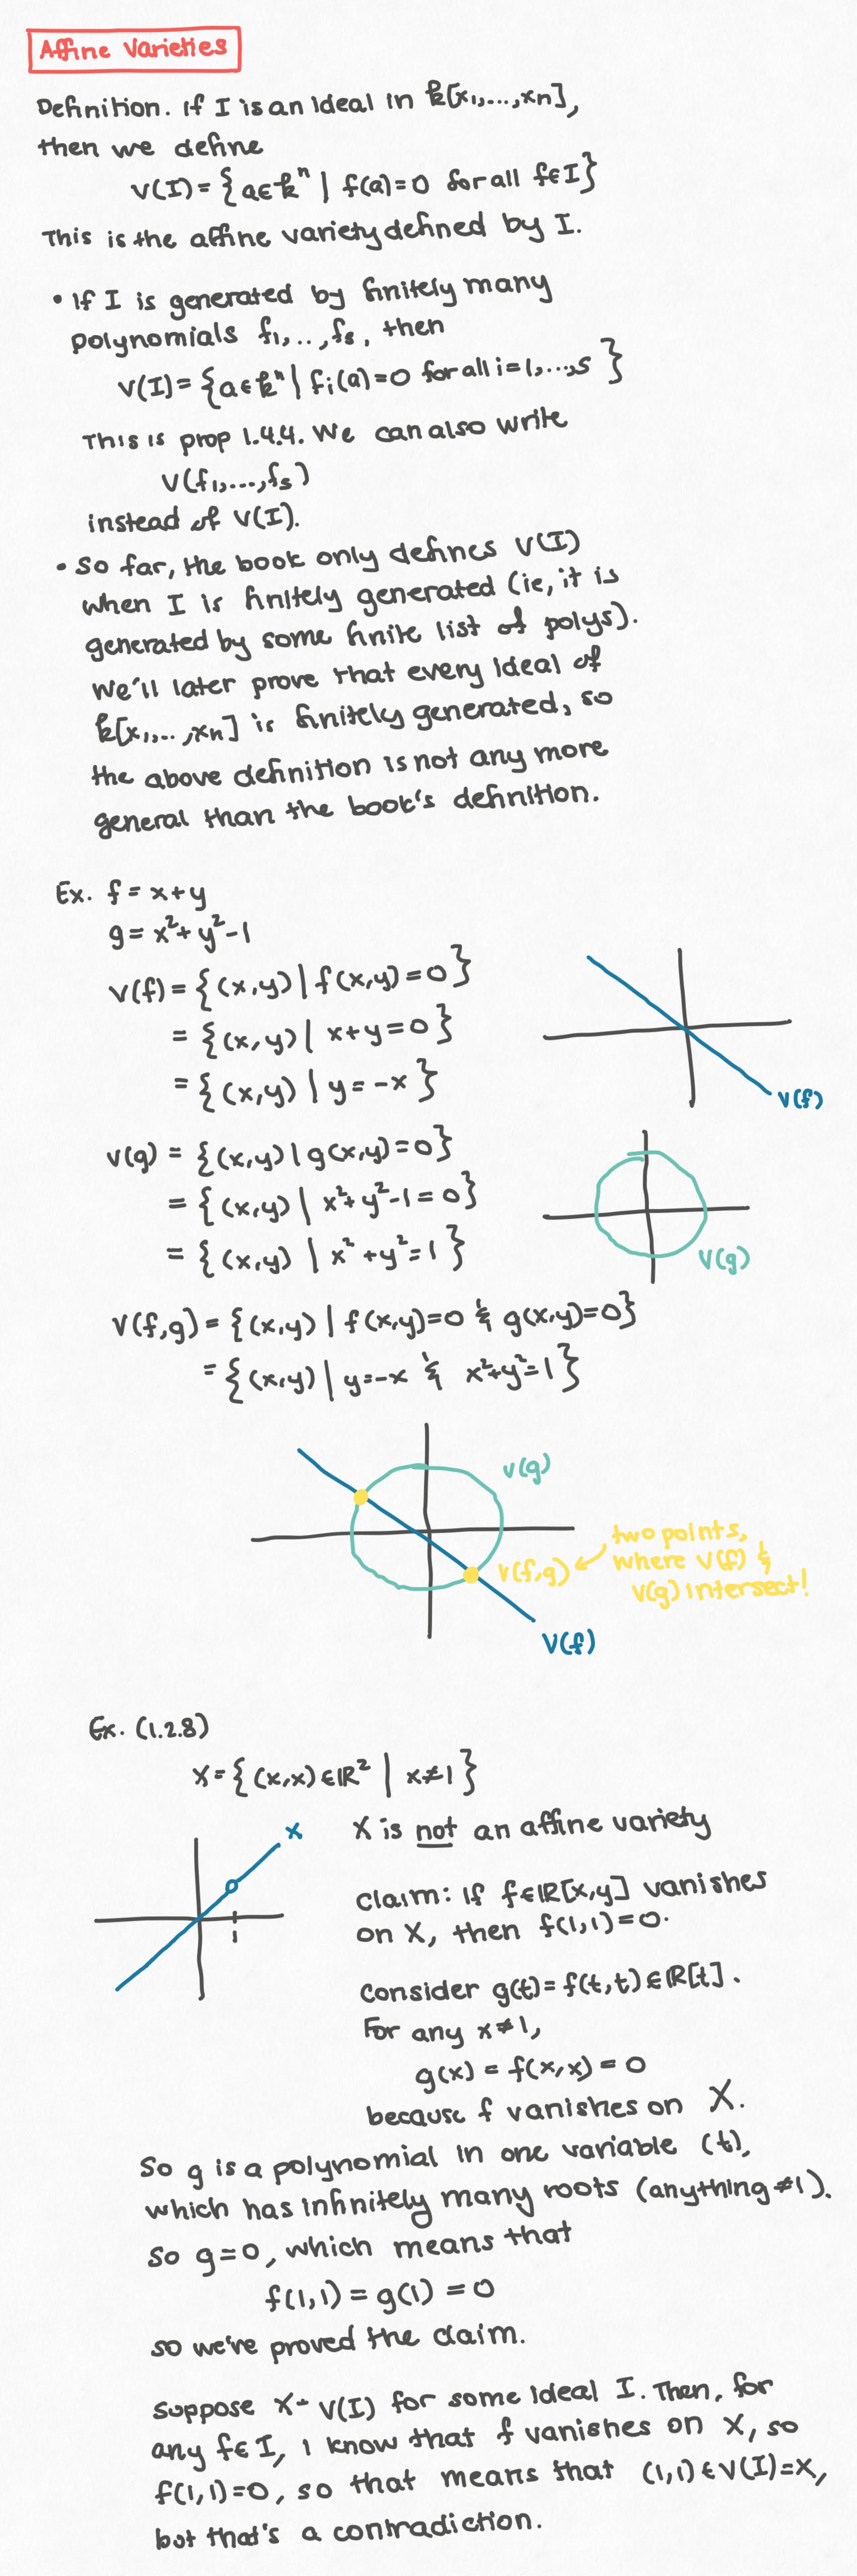 Affine Varieties
Definition. If I is an ideal in k[x₁,...,xₙ],
then we define
V(I) = {a∈kⁿ | f(a)=0 for all f∈I}
This is the affine variety defined by I.
• If I is generated by finitely many
polynomials f₁,..,fₛ, then
V(I) = {a∈kⁿ | fᵢ(a)=0 for all i=1,...,s }
This is prop 1.4.4. We can also write
V(f₁,...,fₛ)
instead of V(I).
• So far, the book only defines V(I)
when I is finitely generated (ie, it is
generated by some finite list of polys).
We'll later prove that every ideal of
k[x₁,..,xₙ] is finitely generated, so
the above definition is not any more
general than the book's definition.
Ex. f = x+y
g = x²+y²-1
V(f) = {(x,y) | f(x,y)=0}
= {(x,y) | x+y=0}
= {(x,y) | y=-x}
V(f)
V(g) = {(x,y) | g(x,y)=0}
= {(x,y) | x²+y²-1=0}
= {(x,y) | x²+y²=1}
V(g)
V(f,g) = {(x,y) | f(x,y)=0 & g(x,y)=0}
= {(x,y) | y=-x & x²+y²=1}
V(g)
V(f,g) ← two points,
where V(f) &
V(g) intersect!
V(f)
Ex. (1.2.8)
X = {(x,x)∈ℝ² | x≠1}
X
1
X is not an affine variety
claim: If f∈ℝ[x,y] vanishes
on X, then f(1,1)=0.
Consider g(t)=f(t,t)∈ℝ[t].
For any x≠1,
g(x) = f(x,x) = 0
because f vanishes on X.
So g is a polynomial in one variable (t),
which has infinitely many roots (anything ≠1).
So g=0, which means that
f(1,1) = g(1) = 0
so we've proved the claim.
Suppose X = V(I) for some ideal I. Then, for
any f∈I, I know that f vanishes on X, so
f(1,1)=0, so that means that (1,1)∈V(I)=X,
but that's a contradiction.